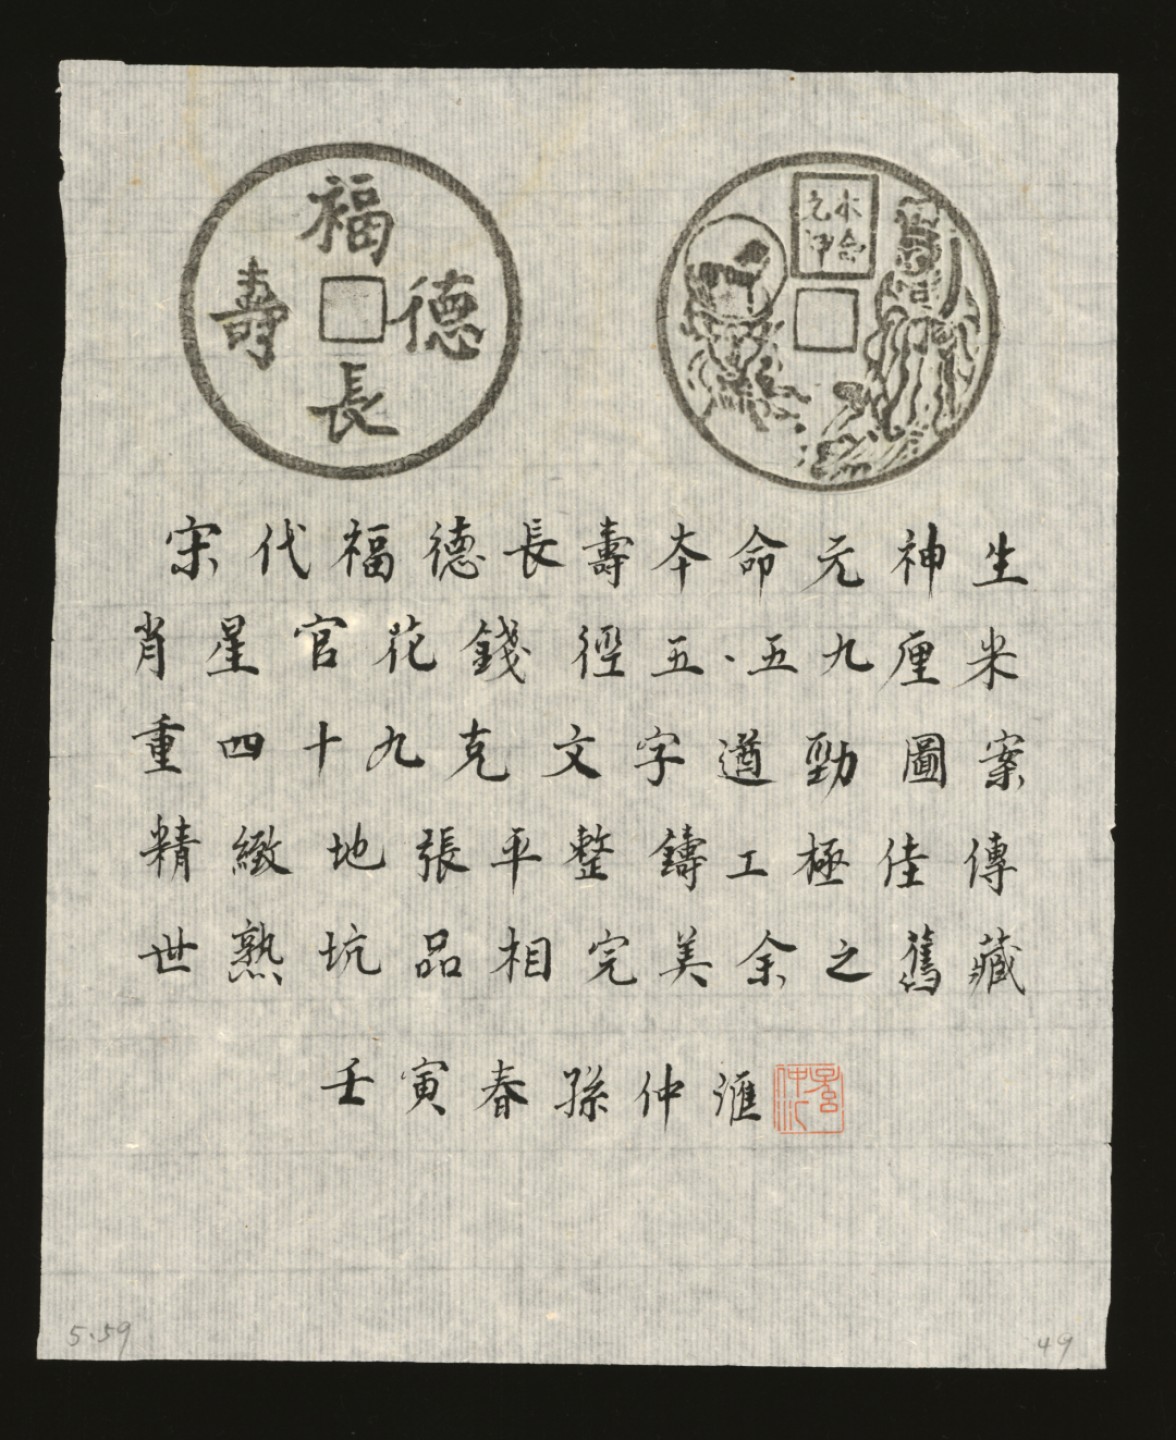 福德長壽
本命元神
宋代福德長壽本命元神生
肖星官花錢徑五.五九厘米
重四十九克文字遒勁圖案
精緻地張平整鑄工極佳傳
世熟坑品相完美余之舊藏
壬寅春孫仲滙
孫仲匯
5.59
49